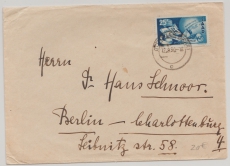 25F
SAAR
Herrn
Dr. Hans Schnoor.
Berlin – Charlottenburg 4
Leibnitz str. 58.